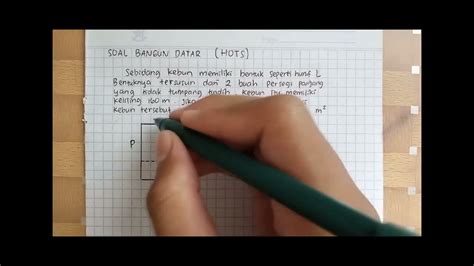 SOAL BANGUN DATAR (HOTS)
Sebidang kebun memiliki bentuk seperti huruf L
Bentuknya tersusun dari 2 buah persegi panjang
yang tidak tumpang tindih. kebun itu memiliki
keliling 160 m. Jika
kebun tersebut m²
P